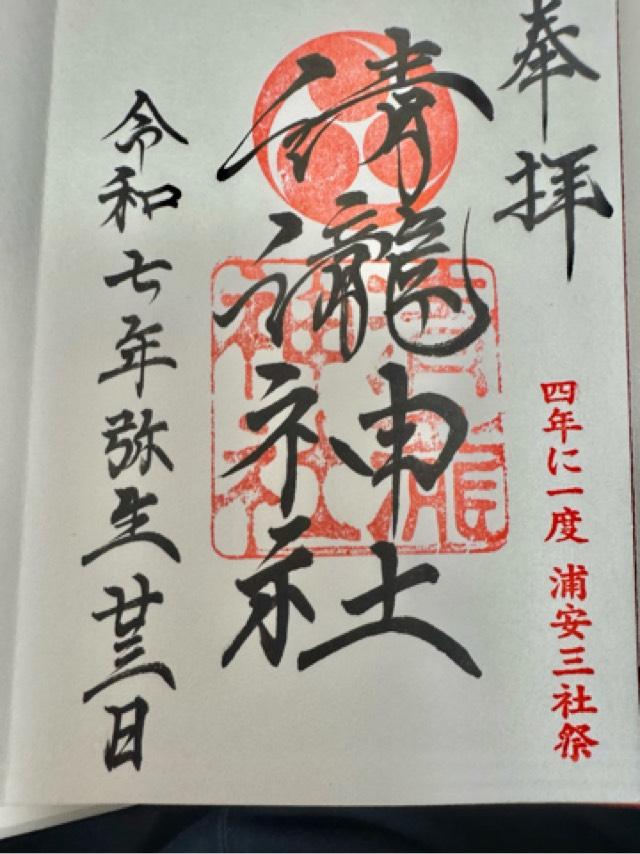 奉拝
四年に一度 浦安三社祭
清瀧神社
令和七年弥生廿三日